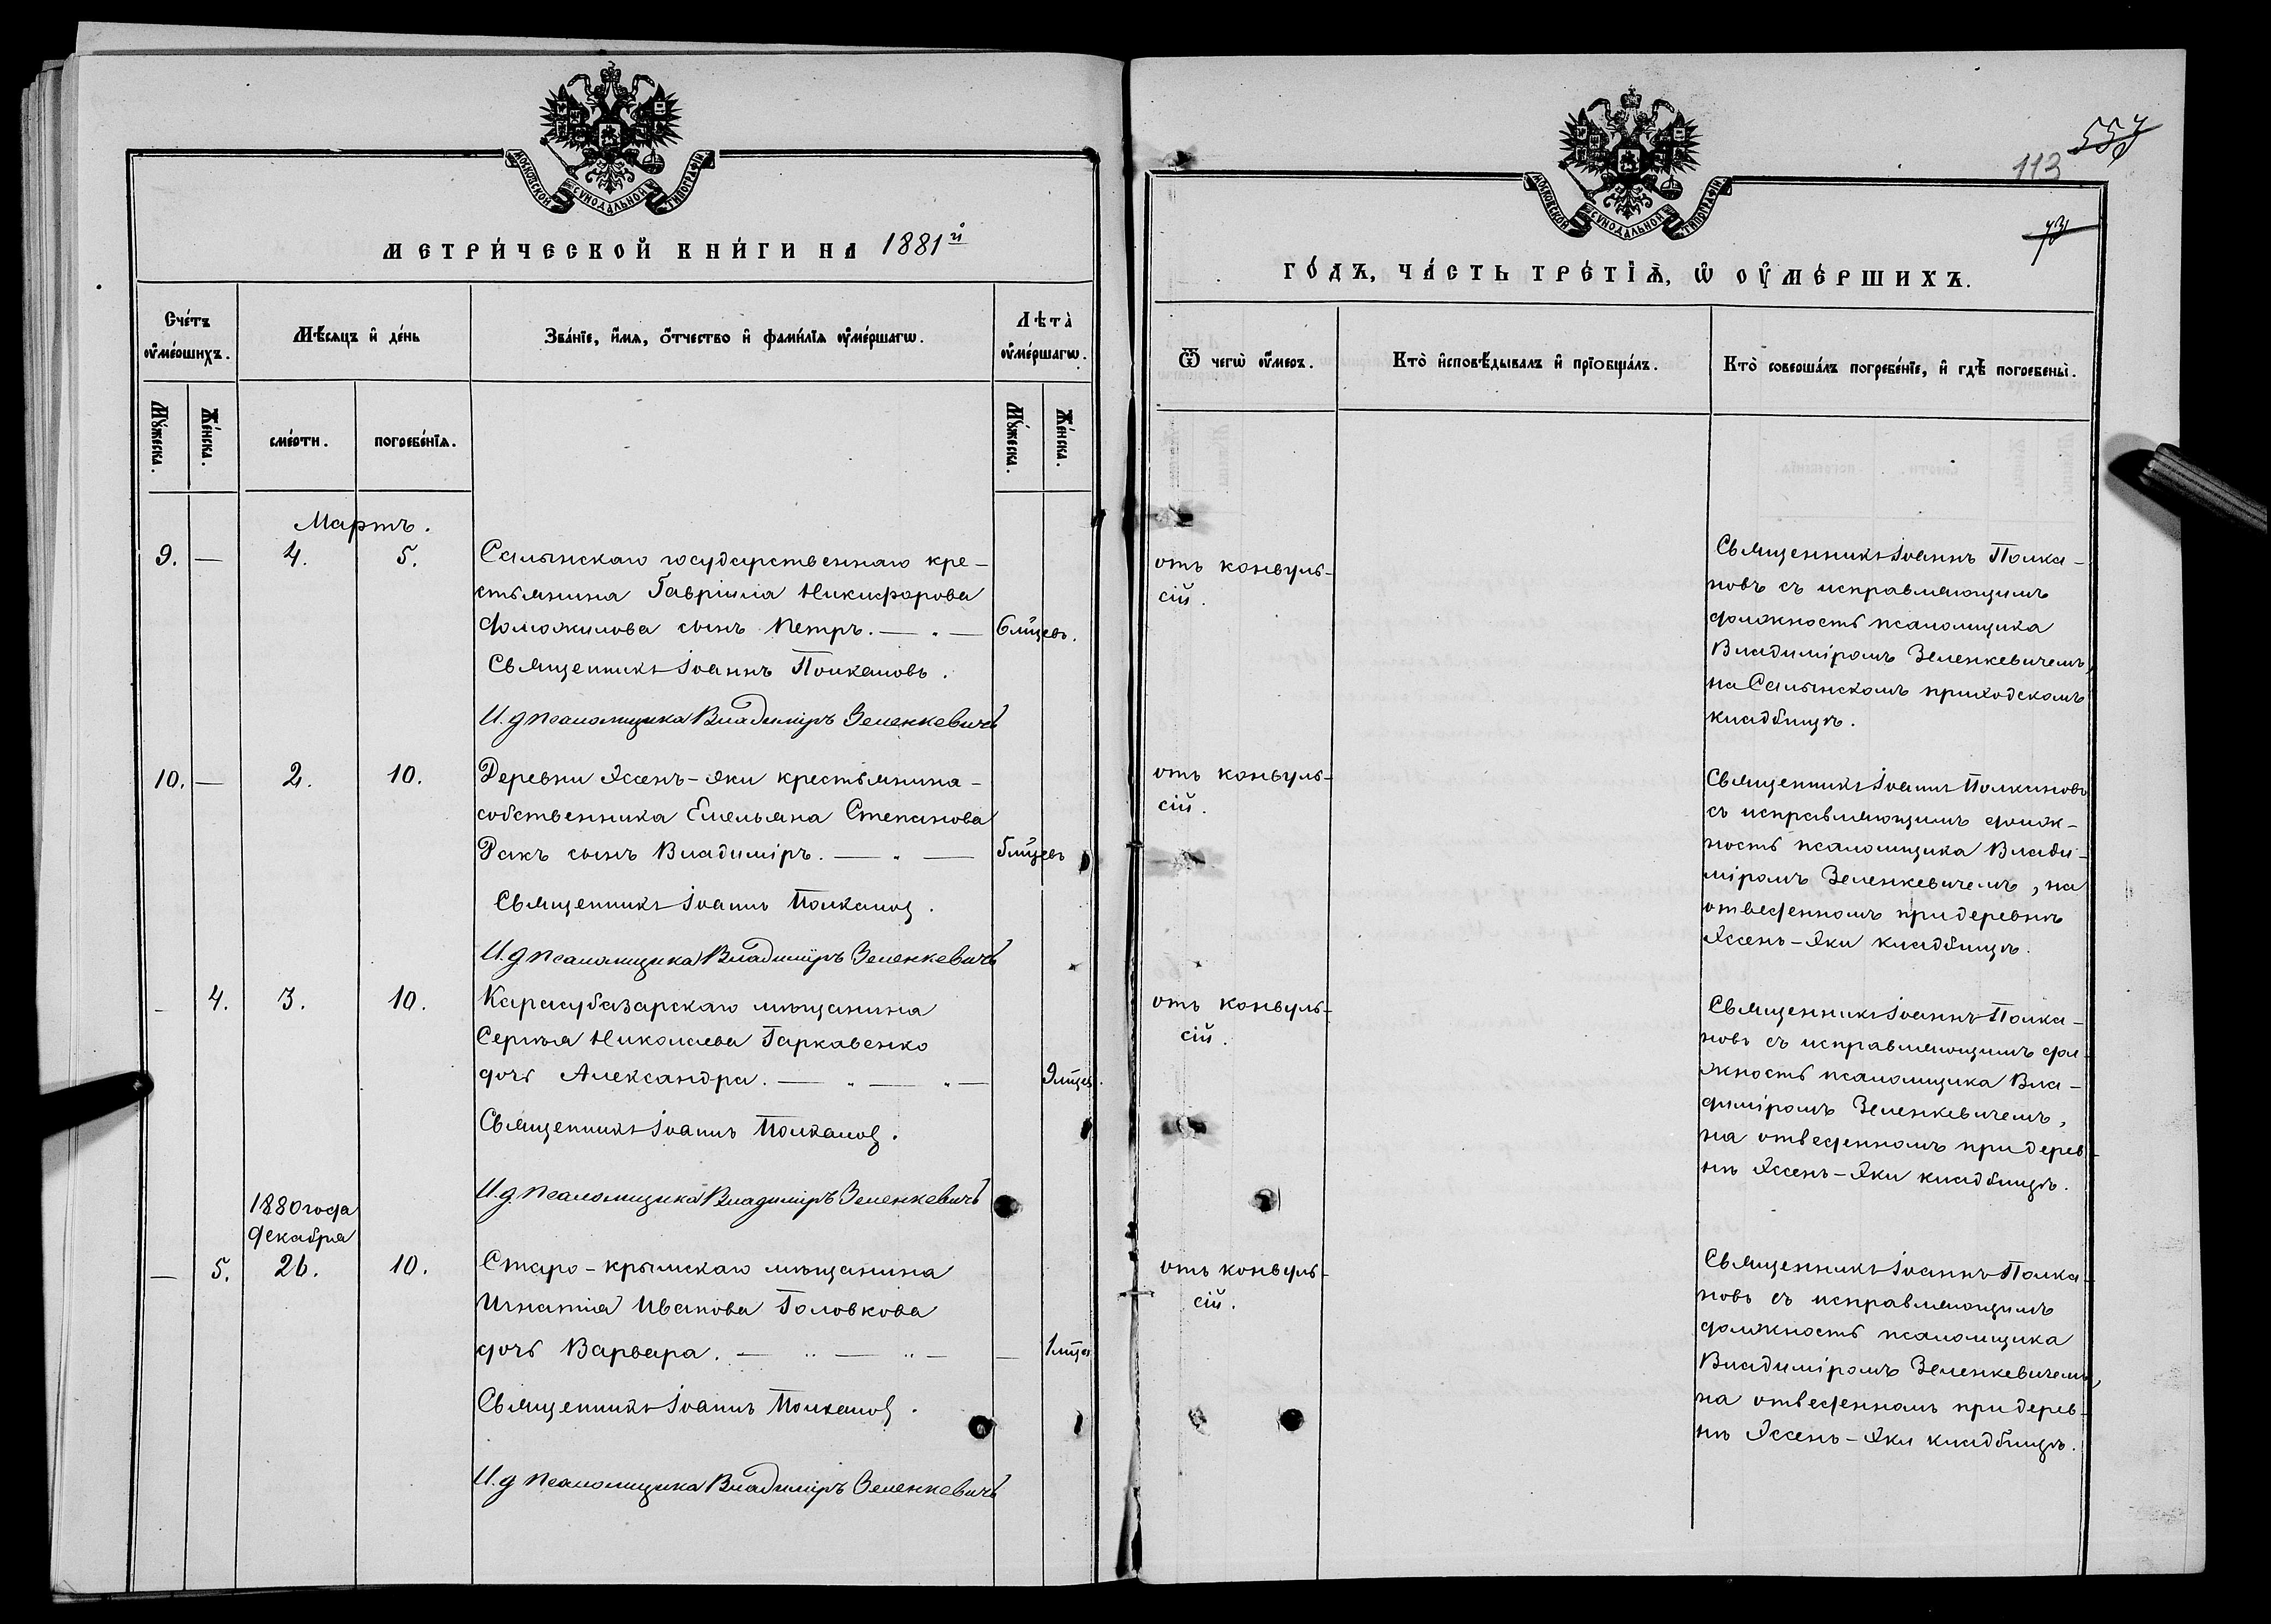 МОСКОВСКОЙ СѴНОДАЛЬНОЙ ТИПОГРАФІИ.
МЕТРИ́ЧЕСКОЙ КНИ́ГИ НА 1881й
Сче́тъ ᲂумершихъ.
Мѣсяцъ и де́нь
Зва́нїе, и́мя, о́тчество и фами́лїя ᲂуме́ршагѡ.
Лѣта̀ ᲂуме́ршагѡ.
Мꙋ́жеска.
Же́нска.
сме́рти.
погребе́нїя.
Мꙋ́жеска.
Же́нска.
Мартъ.
9. — 4. 5. Салынскаго государственнаго кре-
стьянина Гавріила Никифорова
сынъ Петръ. — „ — 6 мѣцевъ.
Священникъ Іоаннъ Полкановъ.
И. д. псаломщика Владиміръ Зеленкевичъ
10. — 2. 10. Деревни Эссенъ-Эки крестьянина-
собственника Емельяна Степанова
Ракъ сынъ Владиміръ. — „ — 5 мѣцевъ
Священникъ Іоаннъ Полкановъ.
И. д. псаломщика Владиміръ Зеленкевичъ
— 4. 3. 10. Карасубазарскаго мѣщанина
Сергѣя Николаева Гаркавенко
дочь Александра. — „ — „ — 9 мѣцев.
Священникъ Іоаннъ Полкановъ.
И. д. псаломщика Владиміръ Зеленкевичъ
1880 года
Декабря
— 5. 26. 10. Старо-крымскаго мѣщанина
Игнатія Иванова Головкова
дочь Варвара. — „ — „ — — 1 мѣца
Священникъ Іоаннъ Полкановъ.
И. д. псаломщика Владиміръ Зеленкевичъ
МОСКОВСКОЙ СѴНОДАЛЬНОЙ ТИПОГРАФІИ.
557
113
ГО́ДЪ, ЧА́СТЬ ТРЕ́ТЇѦ, Ѡ ОУМЕ́РШИХЪ.
Ѿ чегѡ̀ ᲂу́меръ.
Кто̀ исповѣ́дывалъ и прїобща́лъ.
Кто̀ соверша́лъ погребе́нїе, и гдѣ̀ погребены̀.
отъ конвуль-
сій.
Священникъ Іоаннъ Полка-
новъ съ исправляющимъ
должность псаломщика
Владиміромъ Зеленкевичемъ,
на Салынскомъ приходскомъ
кладбищѣ.
отъ конвуль-
сій.
Священникъ Іоаннъ Полкановъ
съ исправляющимъ долж-
ность псаломщика Влади-
міромъ Зеленкевичемъ, на
отведенномъ при деревнѣ
Эссенъ-Эки кладбищѣ.
отъ конвуль-
сій.
Священникъ Іоаннъ Полка-
новъ съ исправляющимъ дол-
жность псаломщика Вла-
диміромъ Зеленкевичемъ,
на отведенномъ при дерев-
нѣ Эссенъ-Эки кладбищѣ.
отъ конвуль-
сій.
Священникъ Іоаннъ Полка-
новъ съ исправляющимъ
должность псаломщика
Владиміромъ Зеленкевичемъ,
на отведенномъ при дерев-
нѣ Эссенъ-Эки кладбищѣ.